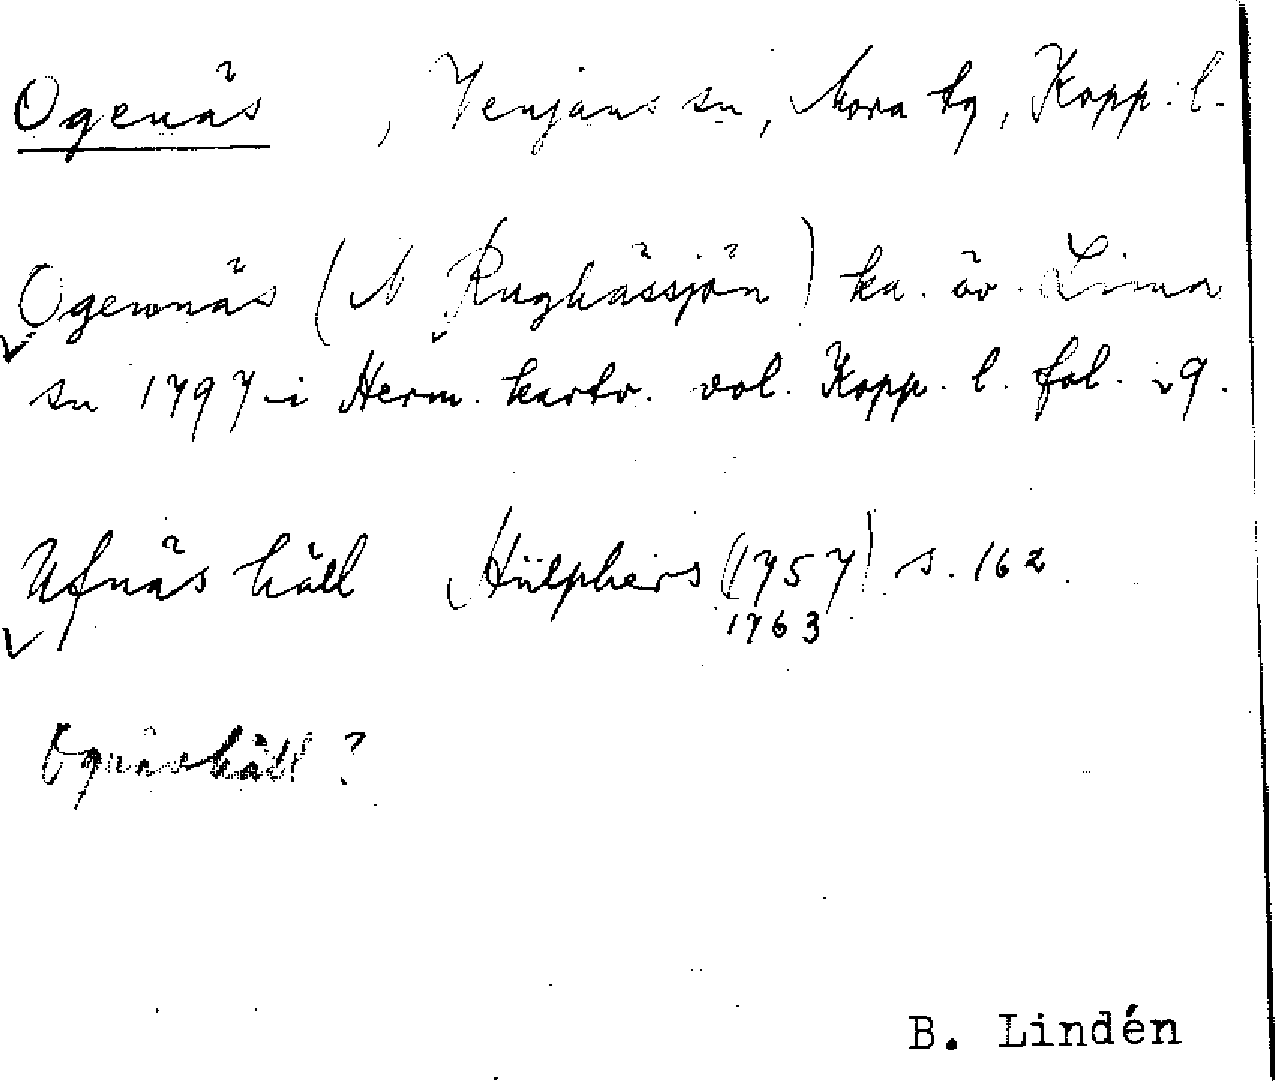 Ogenäs , Venjans sn, Mora tg, Kopp. l.
Ogernäs (N Rughåssjön) ka. öv. Lima
sn 1797 i Herm. kartv. vol. Kopp. l. fol. 29.
Ufnäs häll Hülphers (1757) s. 162.
1763
Ognäshäll?
B. Lindén